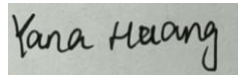 Yana Huang